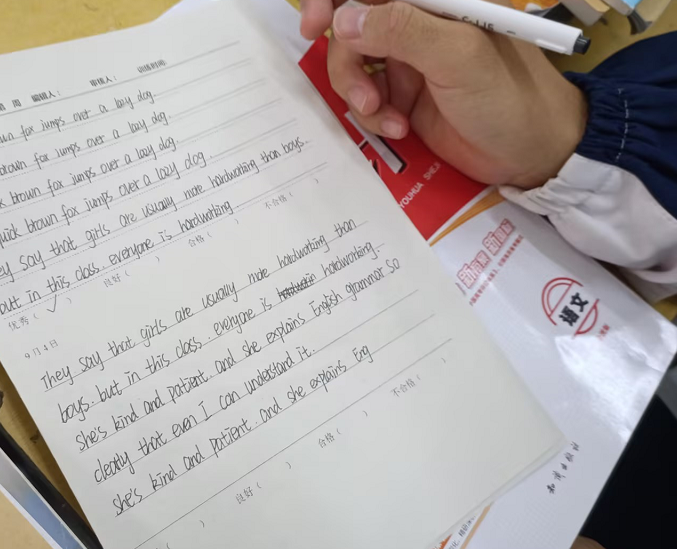 周 编辑人： 审核人： 训练时间：
fox jumps over a lazy dog.
brown fox jumps over a lazy dog.
brown fox jumps over a lazy dog.
quick brown fox jumps over a lazy dog.
say that girls are usually more hardworking than boys.
but in this class, everyone is hardworking
优秀（ ✓ ） 良好（ ） 合格（ ） 不合格（ ）
9月4日
They say that girls are usually more hardworking than
boys. but in this class, everyone is hardworking.
she's kind and patient. and she explains English grammar so
clearly that even I can understand it.
she's kind and patient. and she explains Eng
） 良好（ ） 合格（ ） 不合格（ ）
YOUHUA SHEJI
语文